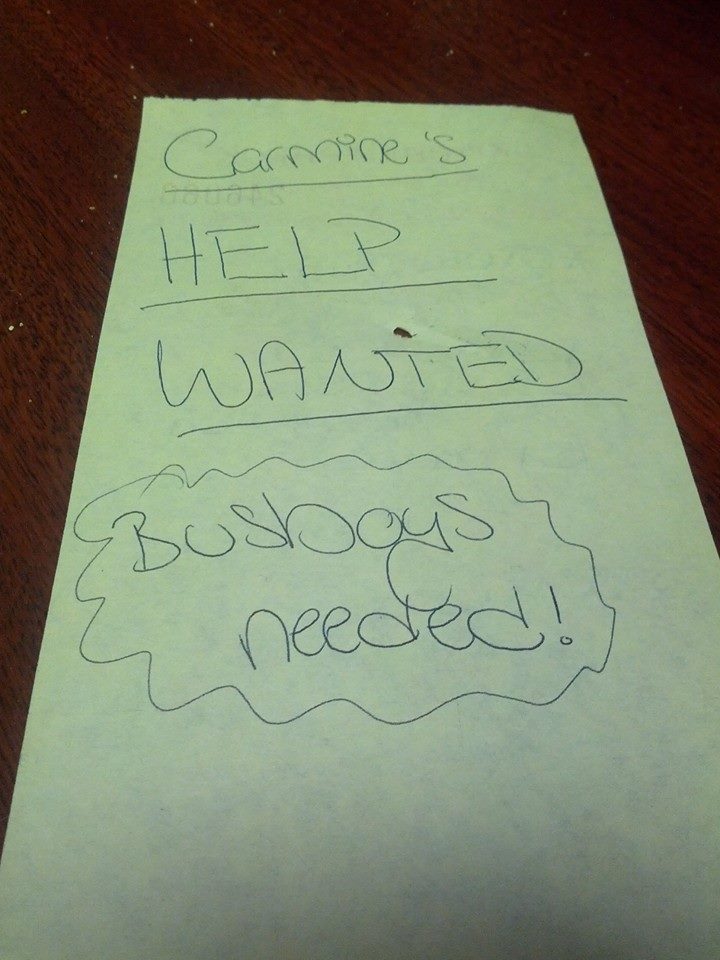 Carmine's
HELP
WANTED
Busboys
needed!